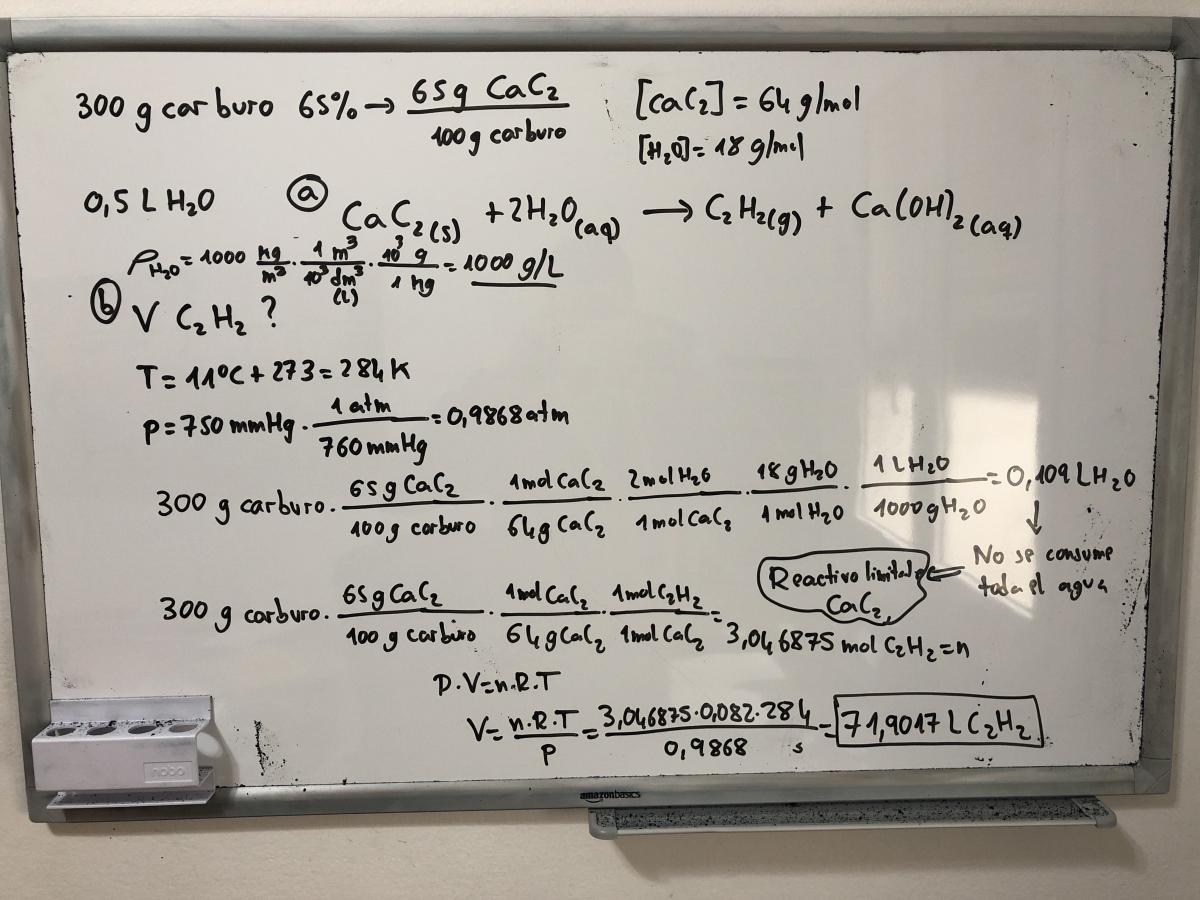 300 g carburo 65% → 65g CaC₂ / 100g carburo [CaC₂] = 64 g/mol
[H₂O] = 18 g/mol
0,5 L H₂O ⓐ CaC₂(s) + 2H₂O(aq) → C₂H₂(g) + Ca(OH)₂(aq)
ρH₂O = 1000 kg/m³ · 1 m³/10³ dm³ (L) · 10³ g/1 kg = 1000 g/L
ⓑ V C₂H₂ ?
T = 11ºC + 273 = 284 K
P = 750 mmHg · 1 atm / 760 mmHg = 0,9868 atm
300 g carburo · 65 g CaC₂ / 100 g carburo · 1 mol CaC₂ / 64 g CaC₂ · 2 mol H₂O / 1 mol CaC₂ · 18 g H₂O / 1 mol H₂O · 1 L H₂O / 1000 g H₂O = 0,109 L H₂O
↓
No se consume
toda el agua
⇐
Reactivo limitate
CaC₂
300 g carburo · 65 g CaC₂ / 100 g carburo · 1 mol CaC₂ / 64 g CaC₂ · 1 mol C₂H₂ / 1 mol CaC₂ = 3,046875 mol C₂H₂ = n
P·V = n·R·T
V = n·R·T / P = 3,046875·0,082·284 / 0,9868 = 71,9017 L C₂H₂
nobo
amazonbasics